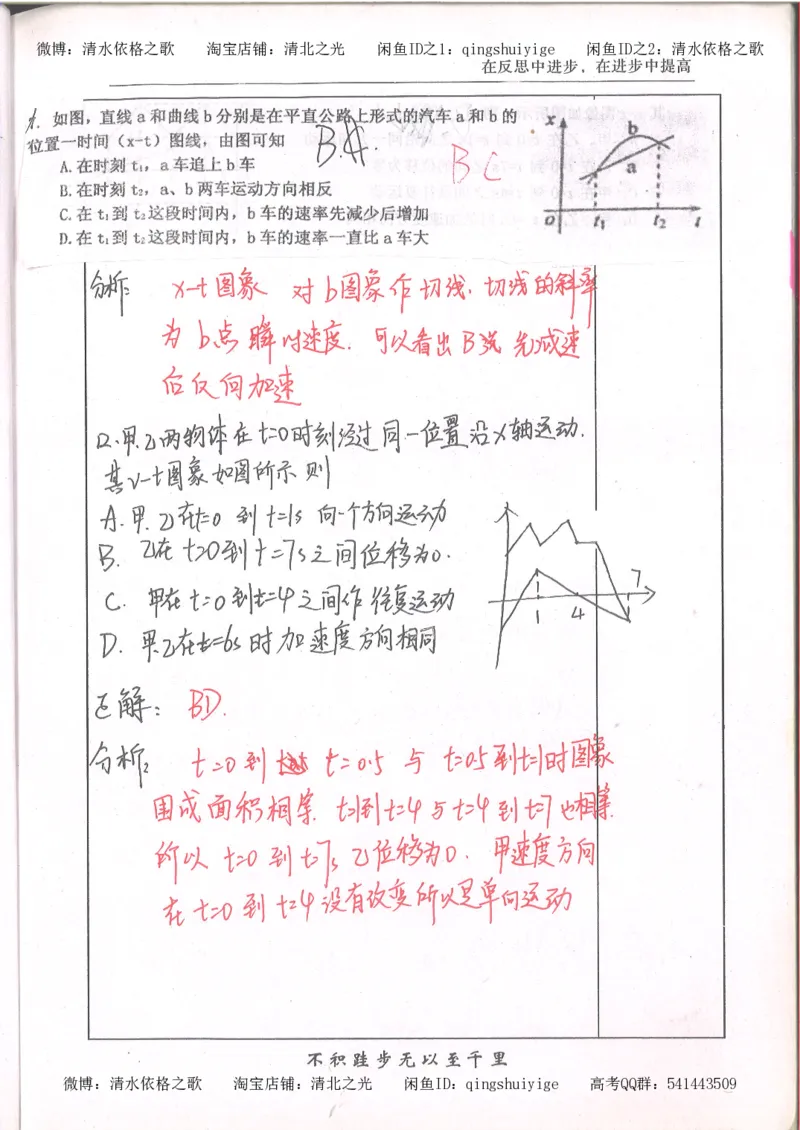 微博：清水依格之歌 淘宝店铺：清北之光 闲鱼ID之1：qingshuiyige 闲鱼ID之2：清水依格之歌
在反思中进步，在进步中提高
1. 如图，直线a和曲线b分别是在平直公路上形式的汽车a和b的
位置一时间（x-t）图线，由图可知 B.A.
BC
A.在时刻t₁，a车追上b车
B.在时刻t₂，a、b两车运动方向相反
C.在t₁到t₂这段时间内，b车的速率先减少后增加
D.在t₁到t₂这段时间内，b车的速率一直比a车大
x
b
a
0 t₁ t₂ t
分析: x-t图象 对b图象作切线.切线的斜率
为b点瞬时速度. 可以看出B说先减速
后反向加速
2.甲.乙两物体在t=0时刻经过同一位置沿x轴运动.
其v-t图象如图所示则
A.甲.乙在t=0到t=1s向一个方向运动
B. 乙在t=0到t=7s之间位移为0.
C. 甲在t=0到t=4之间作往复运动
D. 甲.乙在t=6s时加速度方向相同
1 4 7
正解: BD.
分析: t=0到t=0.5与t=0.5到t=1时图象
围成面积相等. t=1到t=4与t=4到t=7也相等.
所以t=0到t=7s乙位移为0. 甲速度方向
在t=0到t=4没有改变所以是单向运动
不积跬步无以至千里
微博：清水依格之歌 淘宝店铺：清北之光 闲鱼ID：qingshuiyige 高考QQ群：541443509